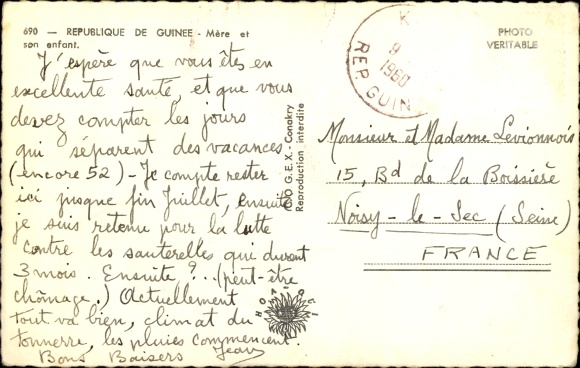 690 — REPUBLIQUE DE GUINEE - Mère et
son enfant.
J'espère que vous êtes en
excellente santé, et que vous
devez compter les jours
qui séparent des vacances
(encore 52) - Je compte rester
ici jusque fin Juillet, ensuite
je suis retenu pour la lutte
contre les sauterelles qui durent
3 mois. Ensuite ?... (peut-être
chômage.) Actuellement
tout va bien, climat du
tonnerre, les pluies commencent.
Bons Baisers Jean
G.E.X. - Conakry
Reproduction interdite
K
9
1960
REP. GUIN
PHOTO
VERITABLE
Monsieur et Madame Levionnois
15, Bd de la Boissière
Noisy-le-Sec (Seine)
FRANCE